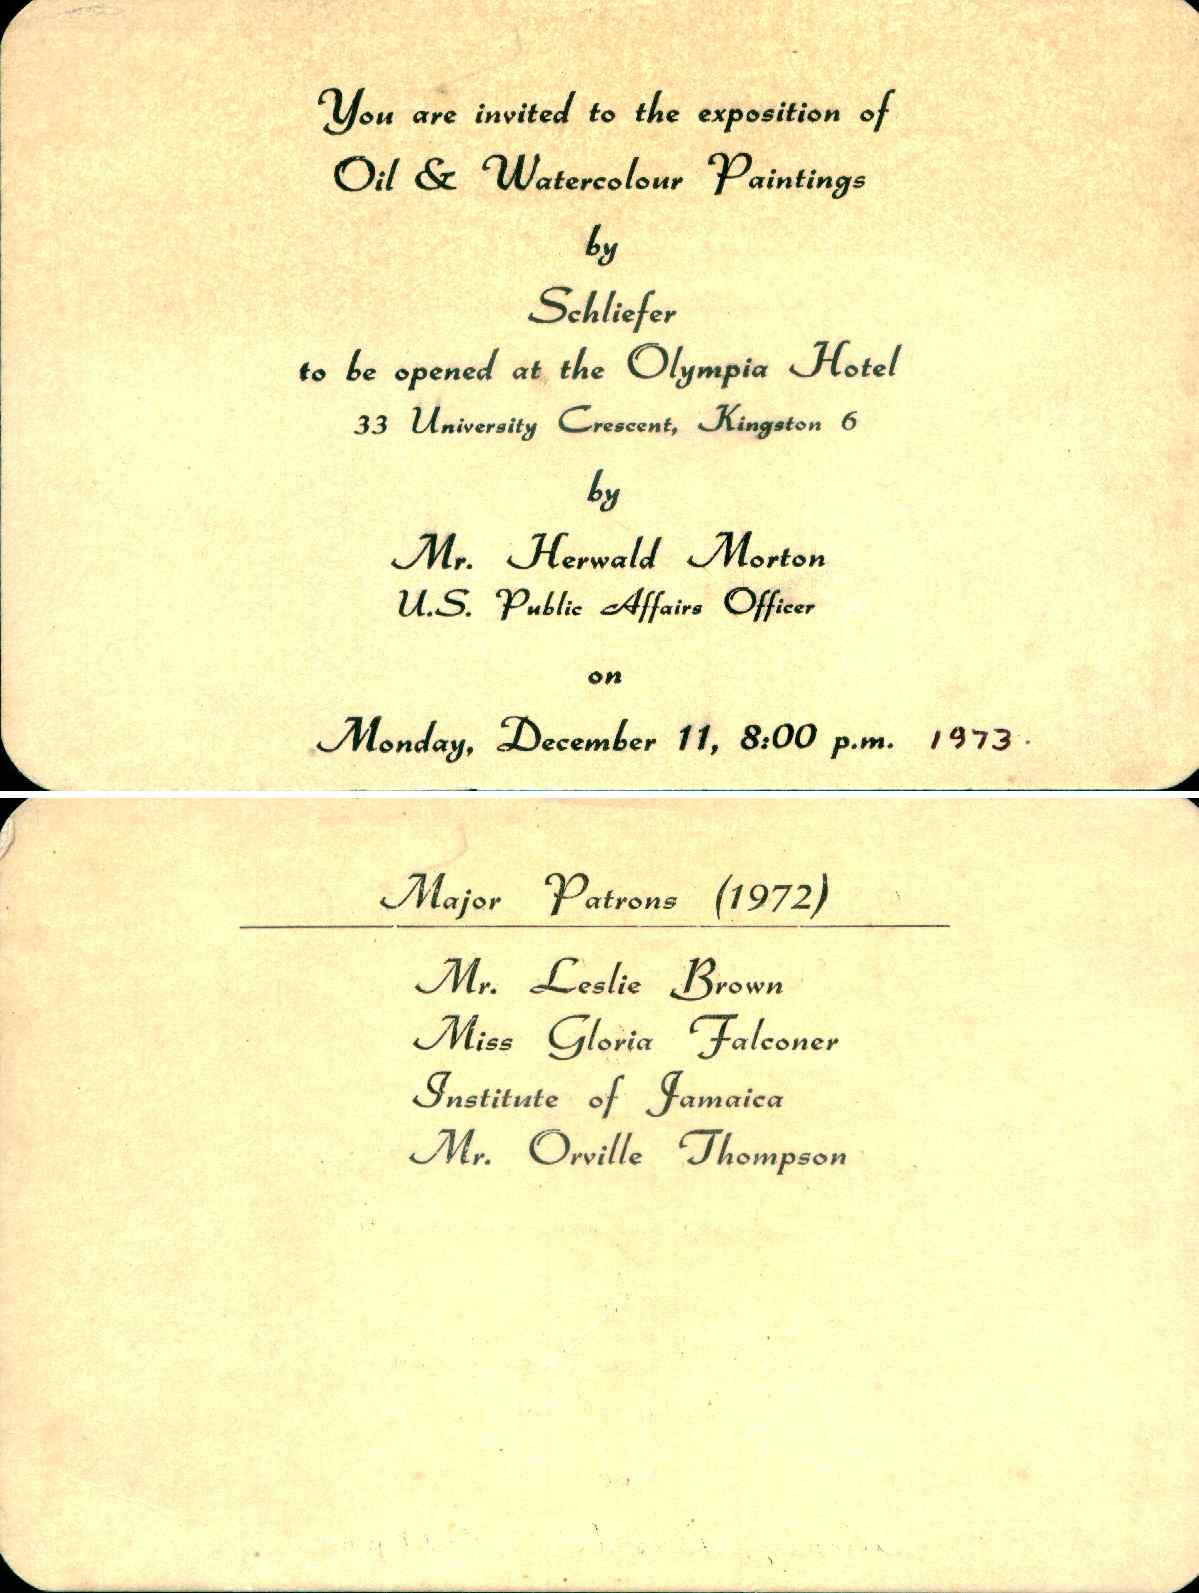 You are invited to the exposition of
Oil & Watercolour Paintings
by
Schliefer
to be opened at the Olympia Hotel
33 University Crescent, Kingston 6
by
Mr. Herwald Morton
U.S. Public Affairs Officer
on
Monday, December 11, 8:00 p.m. 1973.
Major Patrons (1972)
Mr. Leslie Brown
Miss Gloria Falconer
Institute of Jamaica
Mr. Orville Thompson